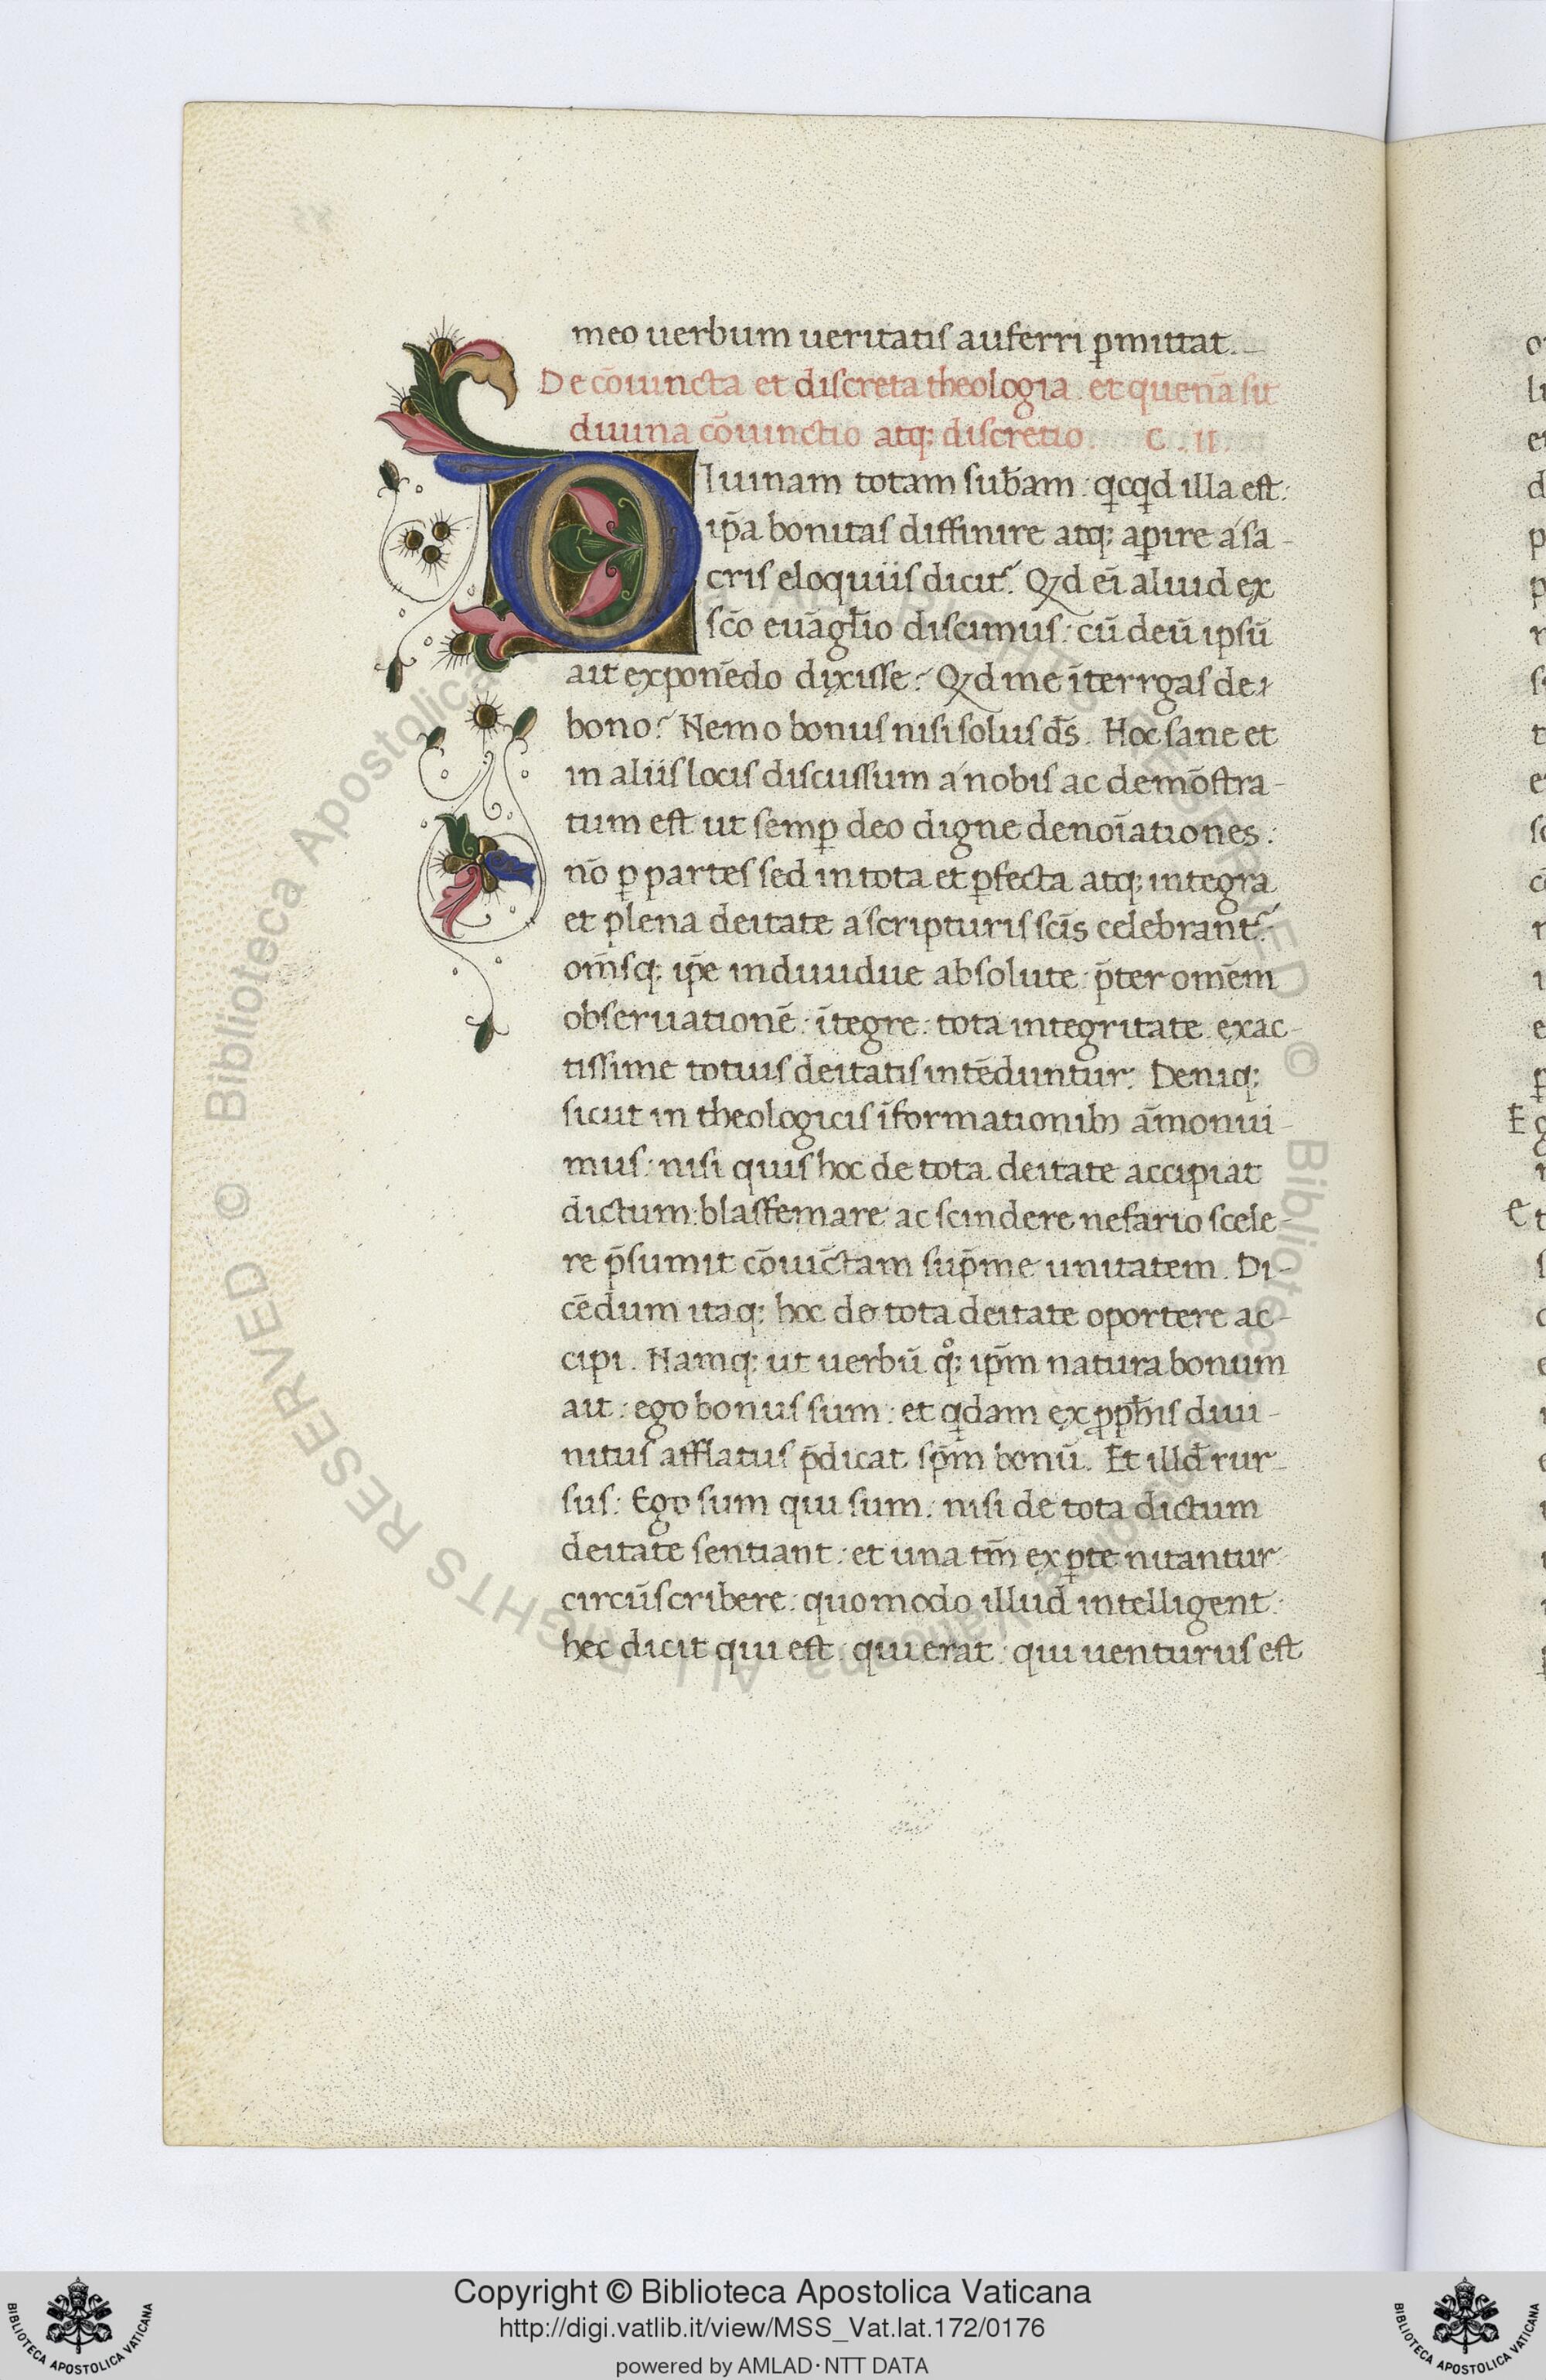 meo uerbum ueritatis auferri ꝑmittat.
De cōiuncta et discreta theologia . et quenā sit
diuina cōiunctio atq; discretio . C . II .
DIuinam totam subāam : qcqd illa est :
ip̄a bonitas diffinire atq; aꝑire a sa-
cris eloquiis dicit᷑. Qd ei aliud ex
sc̄o euāgl̄io discimus : cū deū ipsū
ait exponēdo dixisse : Qd me īterrgas de
bono? Nemo bonus nisi solus ds̄. Hoc sane et
in aliis locis discussum a nobis ac demōstra-
tum est ut semꝑ deo digne denoīationes :
nō ꝑ partes sed in tota et ꝑfecta atq; integra
et plena deitate a scripturis scīs celebrant᷑ :
om̄sq; ip̄e indiuidue absolute : p̄ter omēm
obseruationē : ītegre : tota integritate exac-
tissime totius deitatis intēduntur : Deniq;
sicut in theologicis īformationibꝫ āmonui-
mus : nisi quis hoc de tota deitate accipiat
dictum : blasfemare ac scindere nefario scele-
re p̄sumit cōiūctam sup̄me unitatem . Di-
cēdum itaq; hoc de tota deitate oportere ac-
cipi . Namq; ut uerbū qͦ; ip̄m natura bonum
ait : ego bonus sum : et qdam ex ꝓph̄is diui-
nitus afflatus p̄dicat sp̄m bonū . Et illd̄ rur-
sus : Ego sum qui sum : nisi de tota dictum
deitate sentiant : et una tm̄ ex ꝑte nitantur
circūscribere : quomodo illud intelligent :
hec dicit qui est : qui erat : qui uenturus est
Copyright © Biblioteca Apostolica Vaticana
http://digi.vatlib.it/view/MSS_Vat.lat.172/0176
powered by AMLAD·NTT DATA